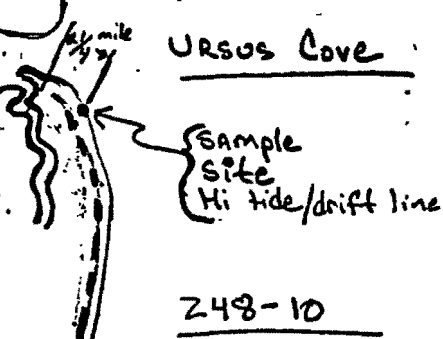 1/4 mile
URSUS Cove
SAMPLE
Site
Hi tide/drift line
248-10